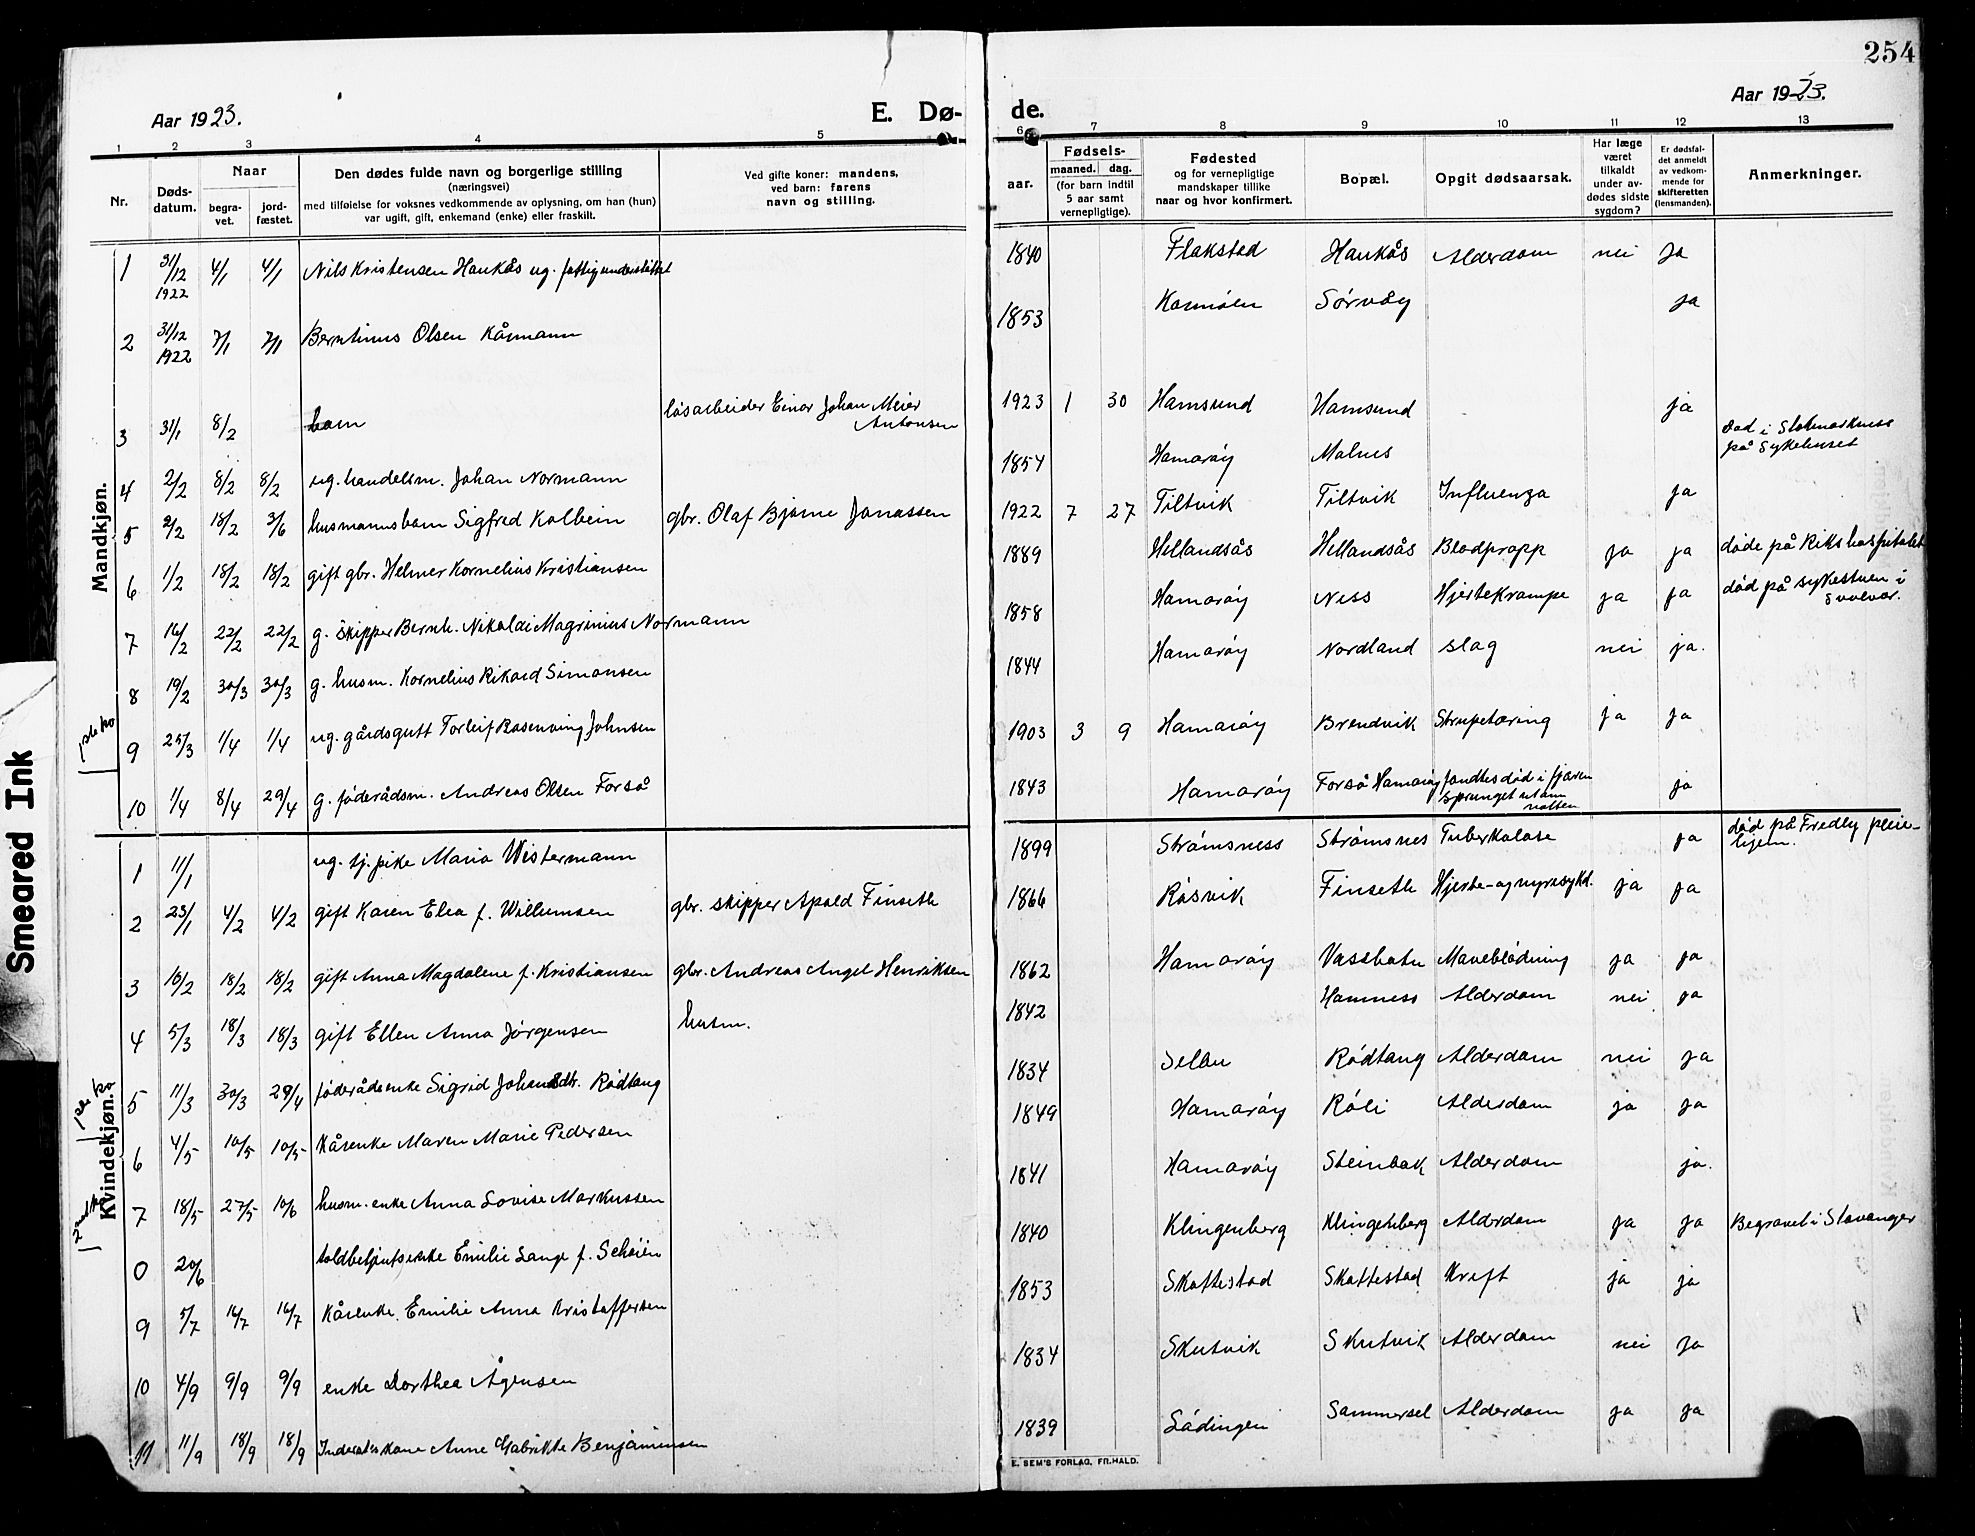 254
Aar 1923.
E. Dø-
de.
Aar 1923.
1 2 3 4 5 6 7 8 9 10 11 12 13
Nr.
Døds-
datum.
Naar
begra-
vet.
jord-
fæstet.
Den dødes fulde navn og borgerlige stilling
(næringsvei)
med tilføielse for voksnes vedkommende av oplysning, om han (hun)
var ugift, gift, enkemand (enke) eller fraskilt.
Ved gifte koner: mandens,
ved barn: farens
navn og stilling.
Fødsels-
aar.
maaned. dag.
(for barn indtil
5 aar samt
vernepligtige).
Fødested
og for vernepligtige
mandskaper tillike
naar og hvor konfirmert.
Bopæl.
Opgit dødsaarsak.
Har læge
været
tilkaldt
under av-
dødes sidste
sygdom?
Er dødsfal-
det anmeldt
av vedkom-
mende for
skifteretten
(lensmanden).
Anmerkninger.
Mandkjøn.
1 31/12 1922 4/1 4/1 Nils Kristensen Haukås ug. fattigunderstøttet 1840 Flakstad Haukås Alderdom nei ja
2 31/12 1922 7/1 7/1 Berntinus Olsen Kårmann 1853 Sørvåg ja
3 31/1 8/2 barn løsarbeider Einar Johan Meier Antonsen 1923 1 30 Hamsund Hamsund ja
4 2/2 8/2 8/2 ug. handelsm. Johan Normann 1854 Hamarøy Malnes død i Stokmarknes på Sykehuset
5 2/2 18/2 3/6 husmannsbarn Sigfred Kolbein gbr. Olaf Bjarne Jonassen 1922 7 27 Tiltvik Tiltvik Influenza ja
6 1/2 18/2 18/2 gift gbr. Helmer Kornelius Kristiansen 1889 Hellandsås Hellandsås Blodpropp ja ja døde på Rikshospitalet
7 16/2 22/2 22/2 g. skipper Bernh. Nikolai Magrinius Normann 1858 Hamarøy Ness Hjertekrampe ja ja død på sykestuen i Svolvær.
8 19/2 30/3 30/3 g. husm. Kornelius Rikard Simonsen 1844 Hamarøy Nordland slag nei ja.
9 25/3 1/4 1/4 ug. gårdsgutt Torleif Rosenving Johnsen 1903 3 9 Hamarøy Brendvik Strupetæring ja ja
10 1/4 8/4 29/4 g. føderådsm. Andreas Olsen Forså 1843 Hamarøy Forså Hamarøy fandtes død i fjæren sprunget ut om natten ja
Kvindekjøn.
1 11/1 ug. tj.pike Maria Wistermann 1899 Strømsness Strømsnes Tuberkulose ja død på Fredly pleie-hjem.
2 23/1 4/2 4/2 gift Karen Elea f. Willumsen gbr. skipper Apold Finseth 1866 Røsvik Finseth Hjerte- og nyresykd. ja ja
3 10/2 18/2 18/2 gift Anna Magdalene f. Kristiansen gbr. Andreas Angel Henriksen 1862 Hamarøy Vassbotn Maveblødning ja ja
4 5/3 18/3 18/3 gift Ellen Anna Jørgensen husm. 1842 Hamness Alderdom nei ja
5 11/3 30/3 29/4 føderådsenke Sigrid Johansdtr. Rødtang 1834 Selbu Rødtang Alderdom nei ja
6 4/5 10/5 10/5 Kårenke Maren Marie Pedersen 1849 Hamarøy Røli Alderdom ja ja
7 18/5 27/5 10/6 husm. enke Anna Lovise Markussen 1841 Hamarøy Steinbak Alderdom ja.
0 20/6 toldbetjentsenke Emilie Lange f. Schøien 1840 Klingenberg Klingenberg Alderdom ja ja Begravet i Stavanger
9 5/7 16/7 16/7 Kårenke. Emilie Anna Kristoffersen 1853 Skottestad Skottestad Kreft ja ja
10 4/9 9/9 9/9 enke Dorthea Ågensen 1834 Skutvik Skutvik Alderdom nei ja
11 11/9 18/9 18/9 Inderstkone Anne Gabrikke Benjaminsen 1839 Lødingen Sommersel Alderdom ja ja
E. SEM'S FORLAG, FR.HALD.
Smeared Ink